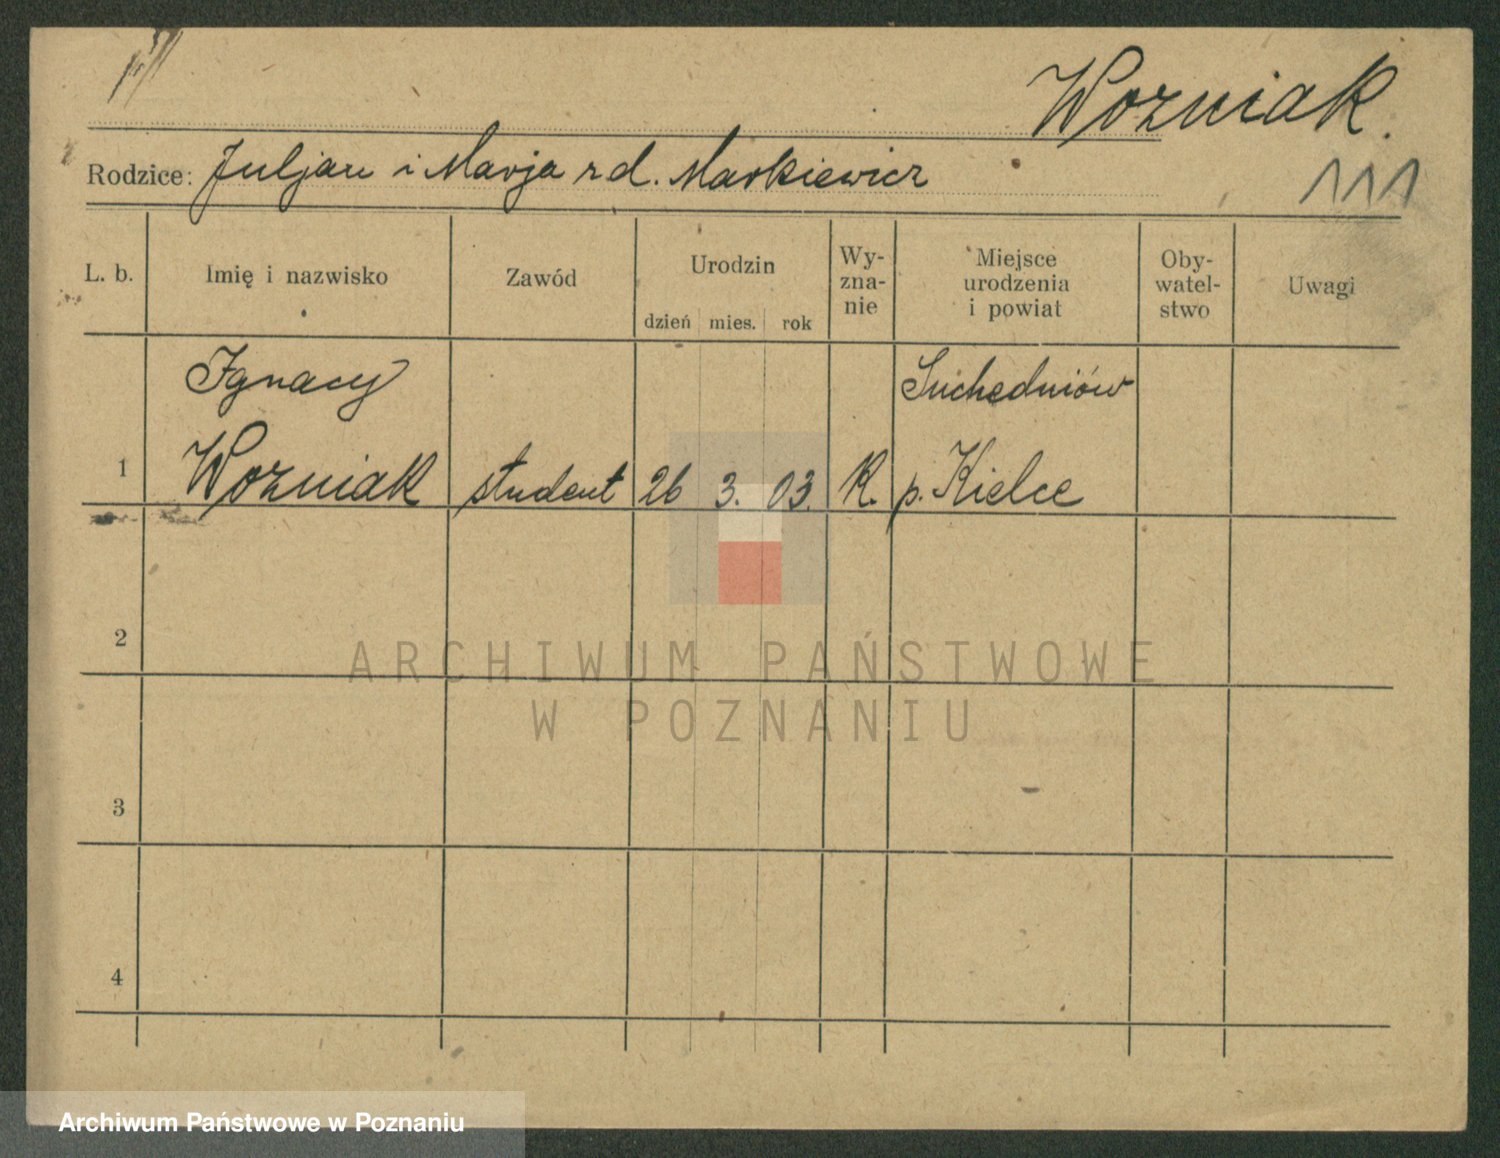 Wozniak.
Rodzice: Juljan i Marja rd. Markiewicz
111
L. b.
Imię i nazwisko
Zawód
Urodzin
dzień mies. rok
Wy-
zna-
nie
Miejsce
urodzenia
i powiat
Oby-
watel-
stwo
Uwagi
Ignacy
Suchedniów
1
Wozniak student 26 3. 03. K. p. Kielce
2
ARCHIWUM PAŃSTWOWE
W POZNANIU
3
4
Archiwum Państwowe w Poznaniu